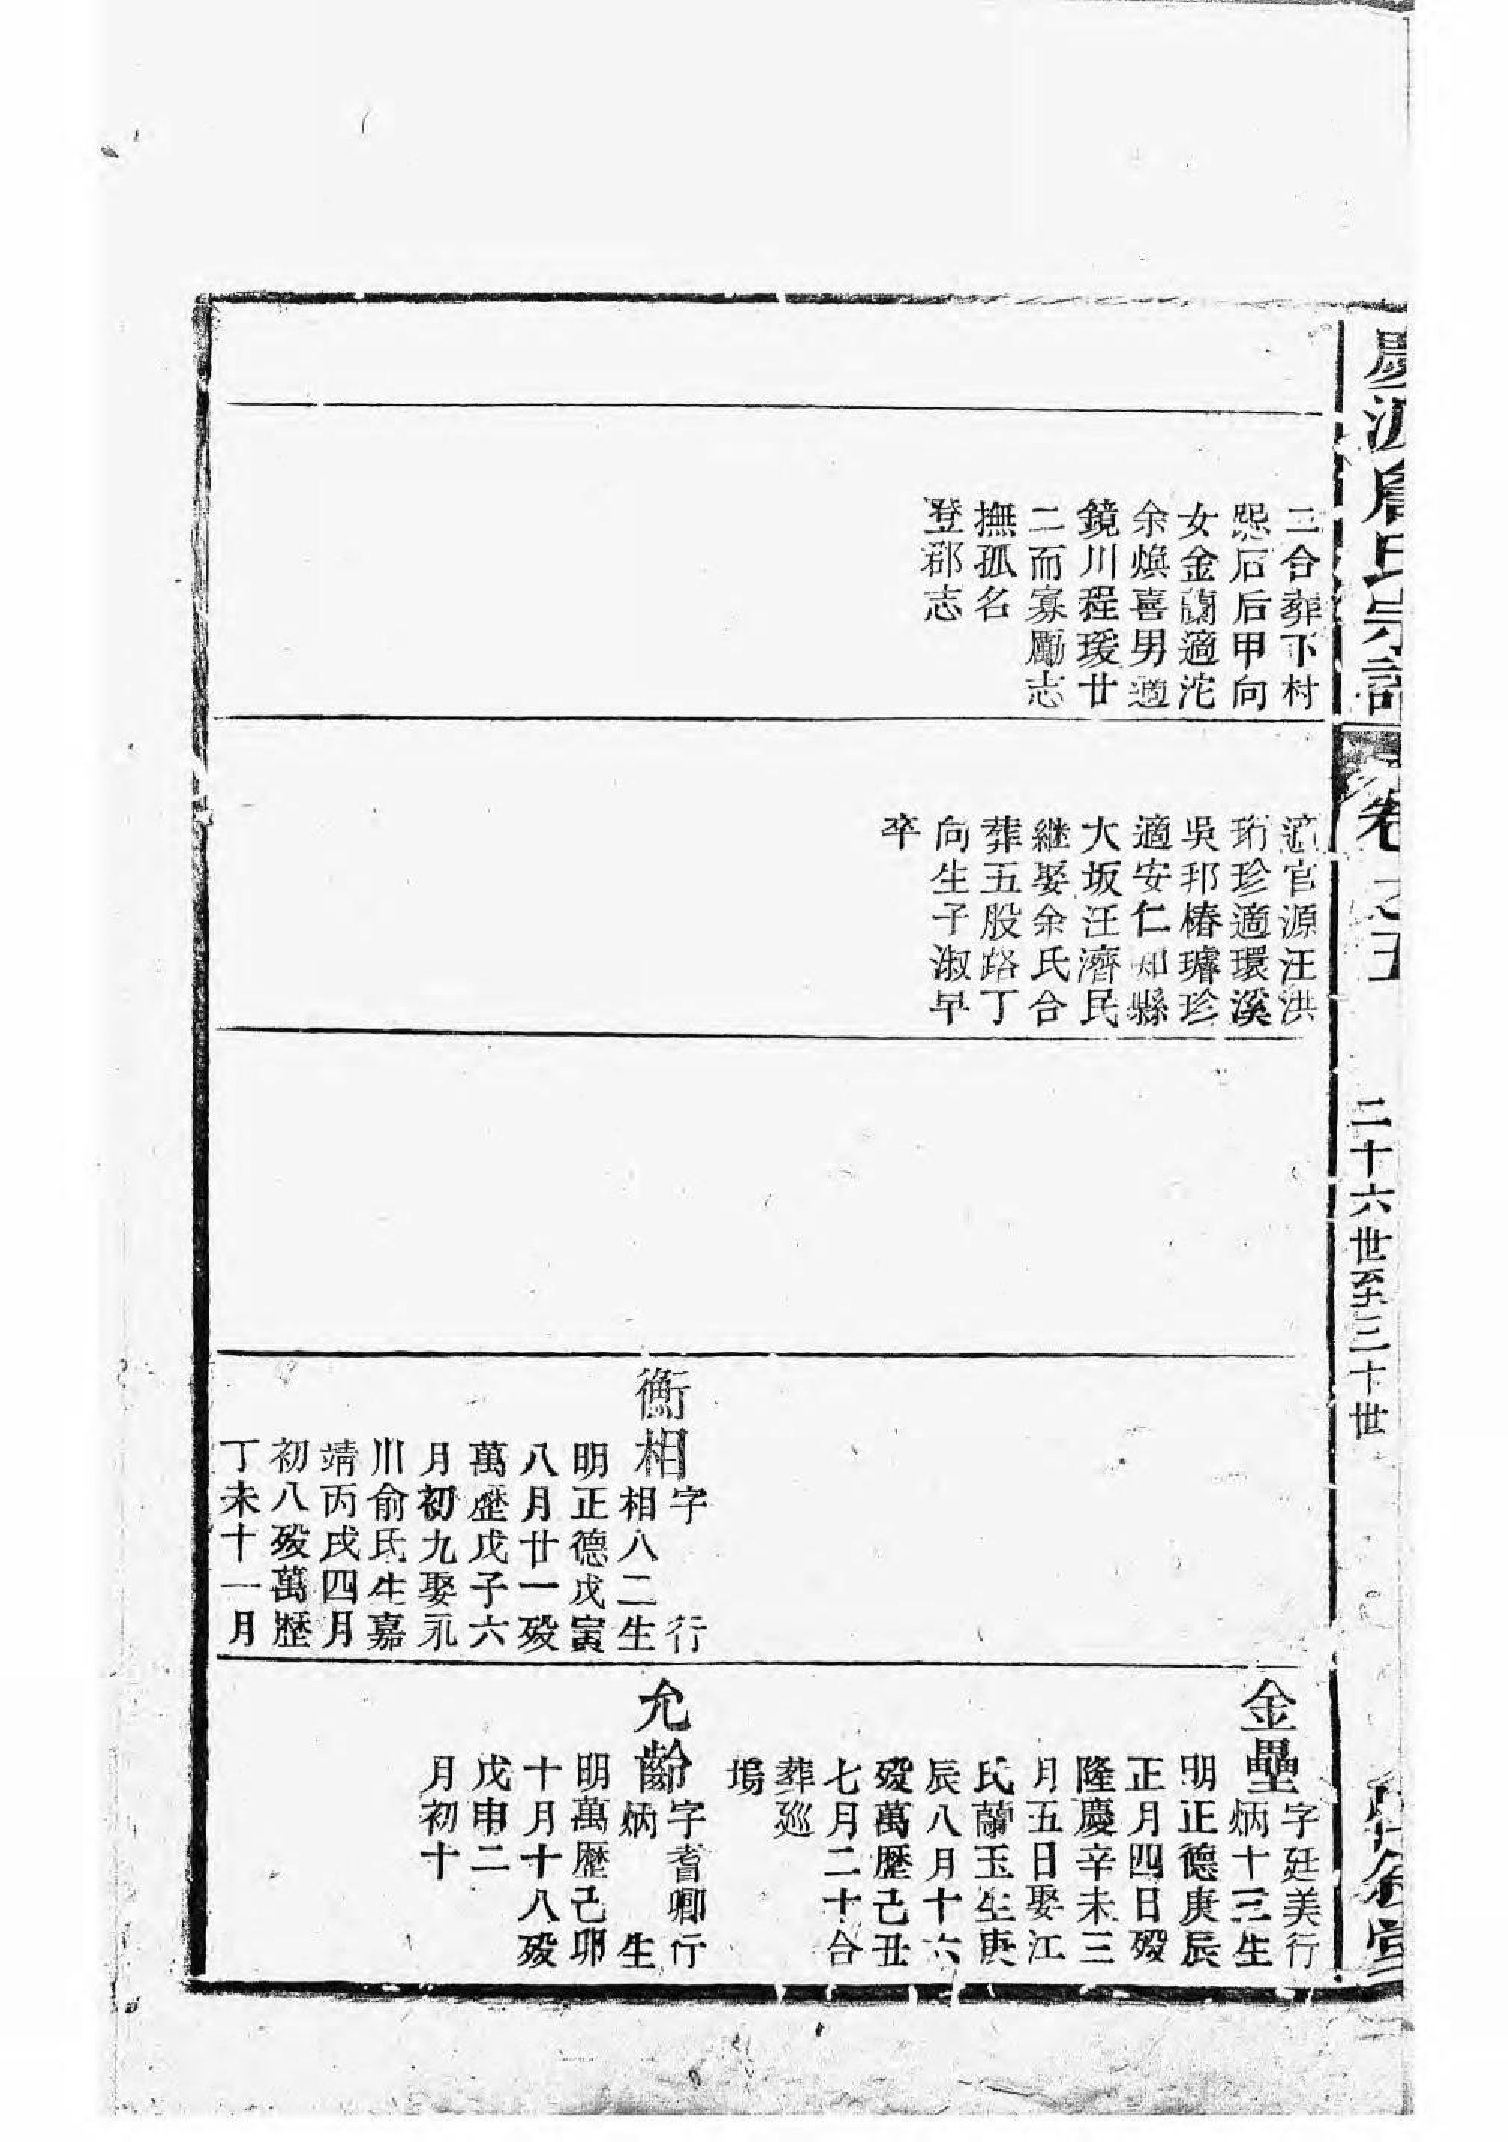 慶源詹氏宗譜
卷之五
二十六世至三十世
二合葬下村
淣后后甲向
女金蘭適沱
余煥喜男適
鏡川程瑗廿
二而寡勵志
撫孤名
登郡志
適官源汪洪
珩珍適環溪
吳邦椿璿珍
適安仁知縣
大坂汪濟民
繼娶余氏合
葬五股路丁
向生子淑早
卒
衡相
字　　行
相八二生
明正德戊寅
八月廿一歿
萬歷戊子六
月初九娶汛
川俞氏生嘉
靖丙戌四月
初八歿萬歷
丁未十一月
金壘
字廷美行
炳十三生
明正德庚辰
正月四日歿
隆慶辛未三
月五日娶江
氏蘭玉生庚
辰八月十六
歿萬歷己丑
七月二十合
葬巡
塢
允齡
字耆卿行
炳　　生
明萬歷己卯
十月十八歿
戊申二
月初十